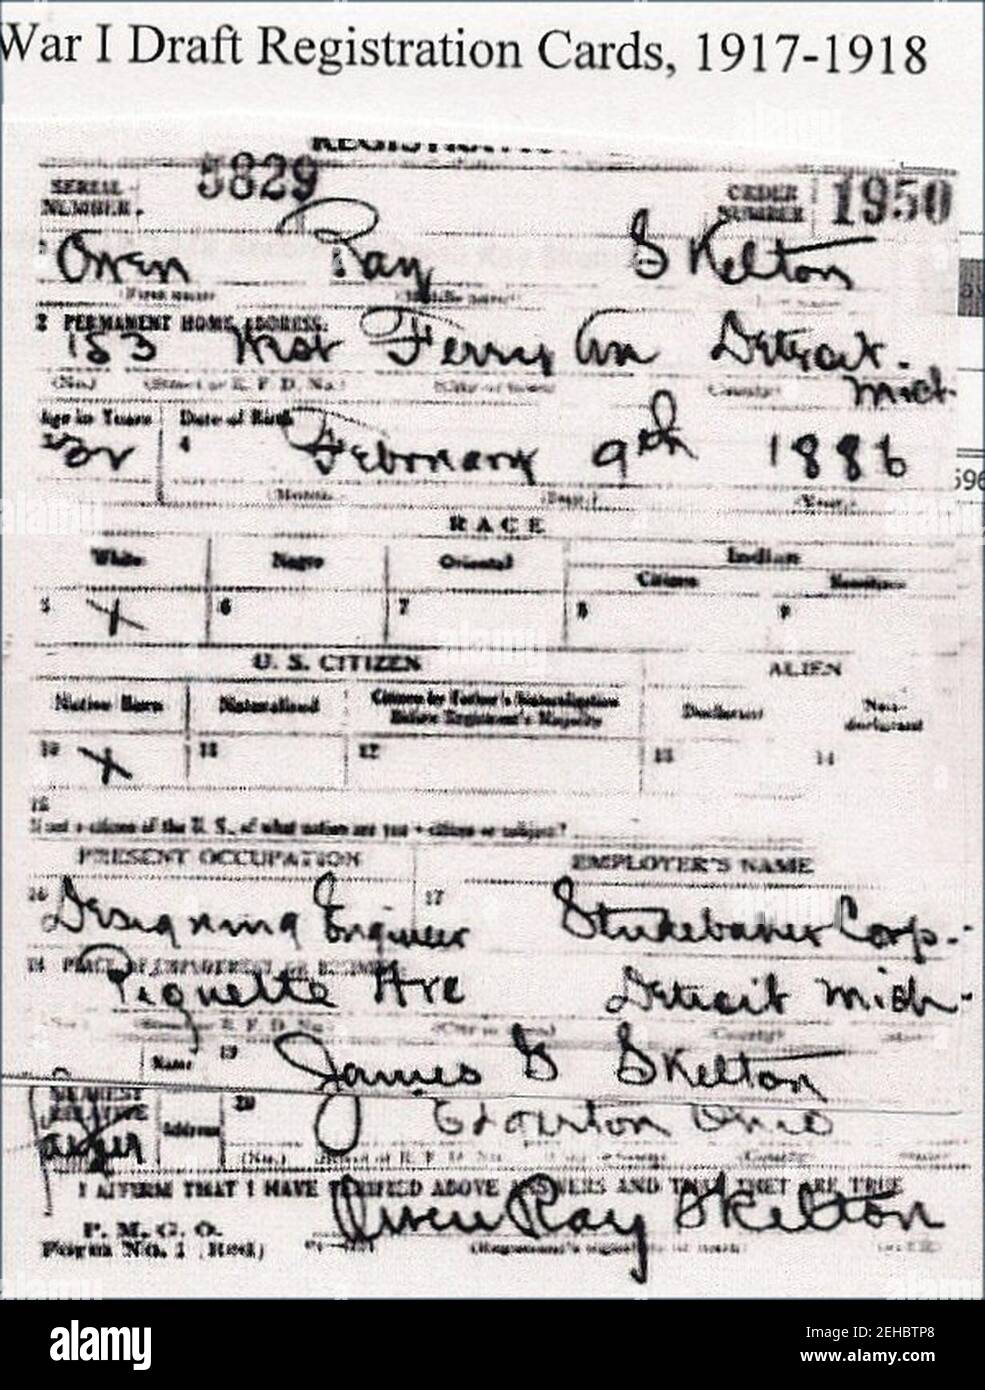 War I Draft Registration Cards, 1917-1918
SERIAL NUMBER. 5829 ORDER NUMBER 1950
1 Owen Ray Skelton
(First name) (Middle name)
2 PERMANENT HOME ADDRESS:
153 West Ferry Ave Detroit. Mich
(No.) (Street or R. F. D. No.) (City or town) (County)
Age in Years Date of Birth
32 4 February 9th 1886
(Month) (Day) (Year)
RACE
White Negro Oriental Indian
Citizen
5 X 6 7 8 9
U. S. CITIZEN ALIEN
Native Born Naturalized Citizen by Father's Naturalization Before Registrant's Majority Declarant Non-declarant
10 X 11 12 13 14
15
If not a citizen of the U. S., of what nation are you a citizen or subject?
PRESENT OCCUPATION EMPLOYER'S NAME
16 Designing Engineer 17 Studebaker Corp.
PLACE OF EMPLOYMENT OR BUSINESS
Piquette Ave Detroit Mich.
R. F. D. No.) County
Name 19 James Skelton
NEAREST RELATIVE
Address 20 Ohio
(No.) R. F. D. No.)
I AFFIRM THAT I HAVE VERIFIED ABOVE ANSWERS AND THAT THEY ARE TRUE
P. M. G. O.
Form No. 1 (Red) Owen Ray Skelton
alamy
Image ID: 2EHBTP8
www.alamy.com